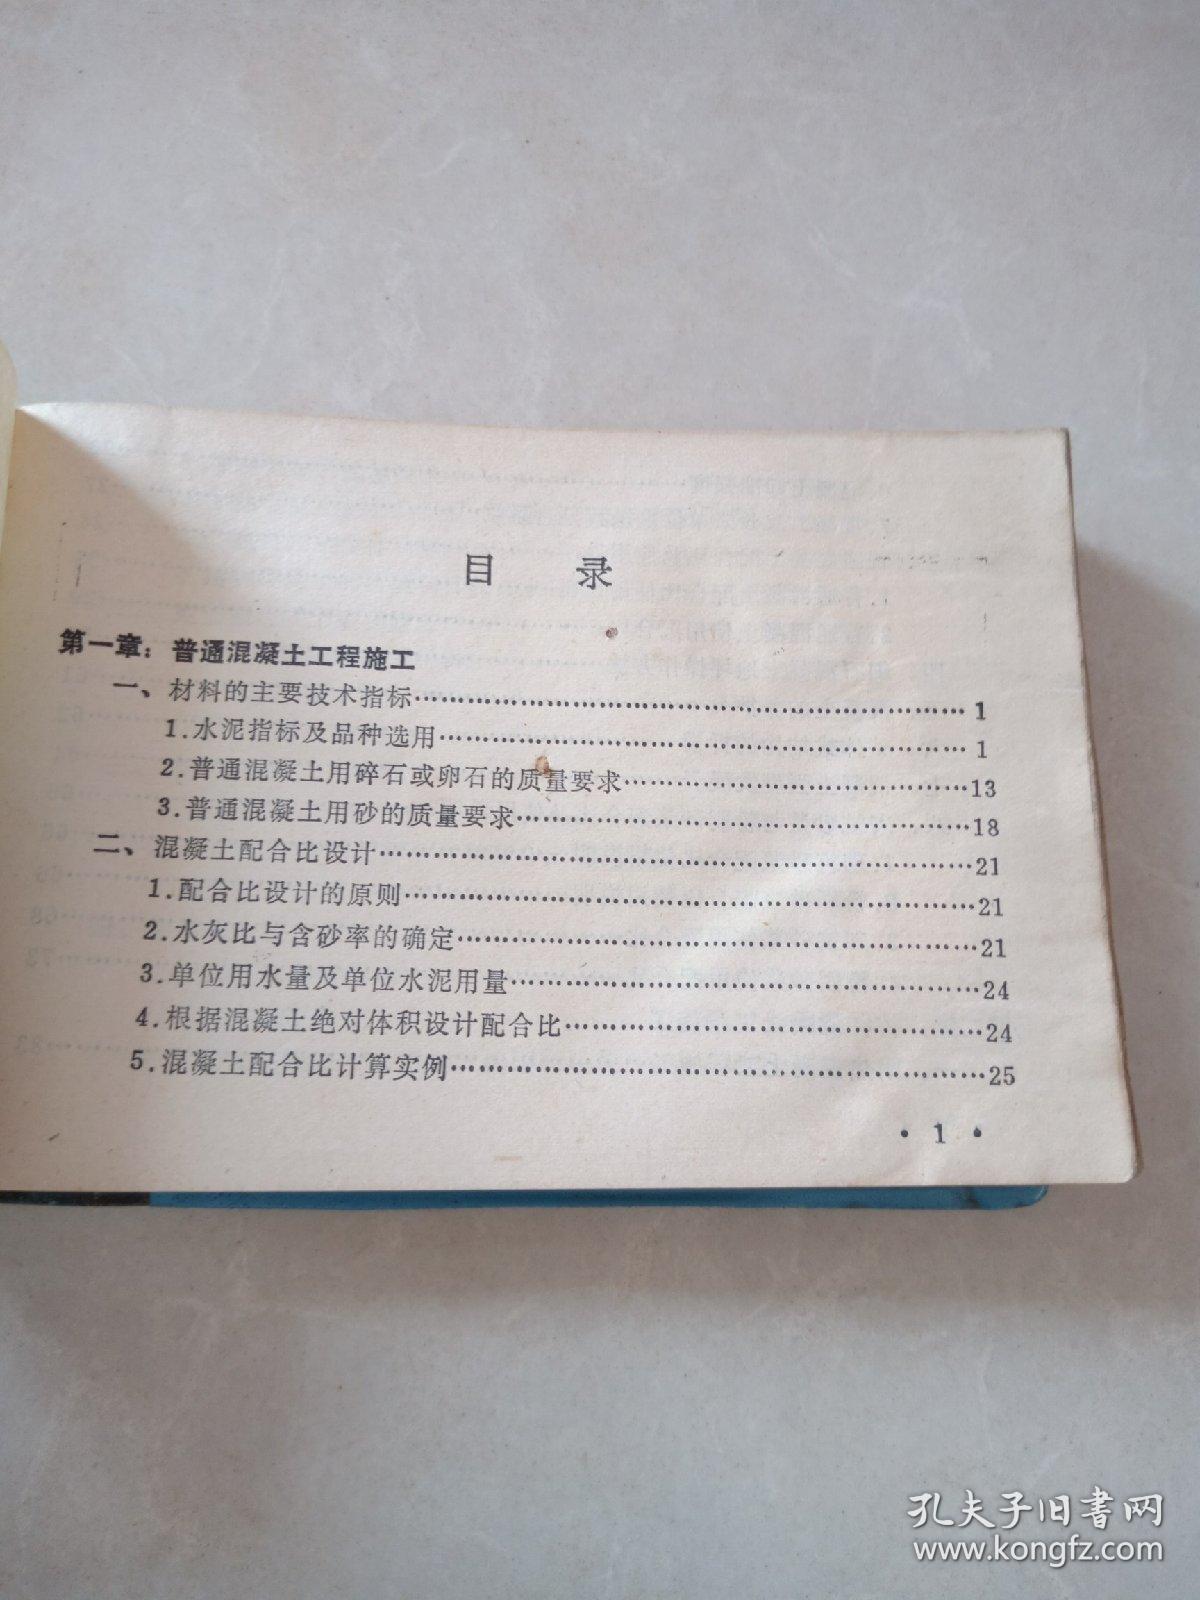 目 录
第一章：普通混凝土工程施工
一、材料的主要技术指标……1
1.水泥指标及品种选用……1
2.普通混凝土用碎石或卵石的质量要求……13
3.普通混凝土用砂的质量要求……18
二、混凝土配合比设计……21
1.配合比设计的原则……21
2.水灰比与含砂率的确定……21
3.单位用水量及单位水泥用量……24
4.根据混凝土绝对体积设计配合比……24
5.混凝土配合比计算实例……25
• 1 •
孔夫子旧书网
www.kongfz.com